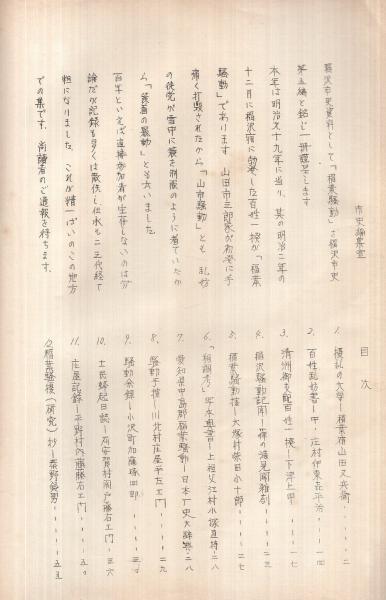 市史編纂室
稲沢市史資料として「稲葉騒動」を稲沢市史
第五編と銘じ一冊謹呈します
本年は明治九十九年に当り、其の明治二年の
十二月に稲沢宿に勃発した百姓一揆が「稲葉
騒動」であります 山田市三郎家が初発に手
痛く打毀されたから「山市騒動」とも 乱妨
の徒党が雪中に蓑を制服のように着ていたか
ら「蓑着の騒動」とも云いました
百年といえば直接参加者が生存しないのは勿
論だが記録も多くは散佚し伝承も二三代経て
粗になりました これが精一ぱいのこの地方
での集です、尚諸者のご通報を待ちます、
目次
1. 擾乱の大学ー稲葉宿山田又兵衛 二
2. 百姓乱妨書ー中ノ庄村伊東喜平治 一四
3. 清洲御支配百姓一揆ー下津上町 一七
4. 稲沢騒動記聞ー 雑刻
5. 稲葉騒動控ー大塚村柴田小十郎 二七
6. 年本奥書ー上祖父江村小塚直持 二八
7. 愛知県中島郡稲葉騒動ー日本歴史大辞典 二八
8. 騒動手控ー川北村庄屋平左エ門 二九
9. 騒動余録ー小沢町加藤 四郎 三〇
10. 土民蜂起日誌ー府安賀村関戸藤右エ門 三六
11. 庄屋記録ー平野村内藤藤右エ門 五〇
12. 稲葉騒優(研究)抄ー秦野 男 五三